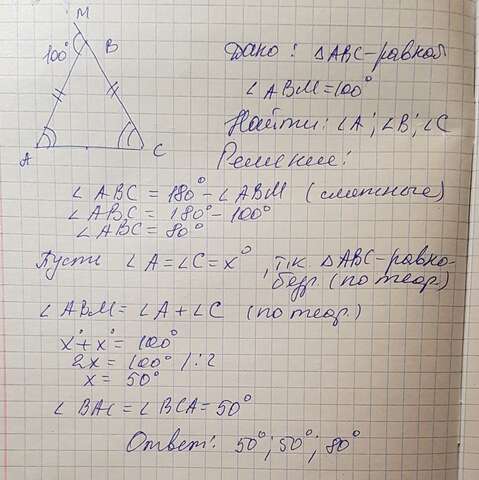 M
100° B
A C
Дано: △ABC-равноб
∠ABM=100°
Найти: ∠A; ∠B; ∠C
Решение:
∠ABC = 180° - ∠ABM (смежные)
∠ABC = 180° - 100°
∠ABC = 80°
Пусть ∠A=∠C=x°, т.к. △ABC-равно-
бедр. (по теор.)
∠ABM = ∠A + ∠C (по теор.)
x°+x° = 100°
2x = 100° /:2
x = 50°
∠BAC = ∠BCA = 50°
Ответ: 50°; 50°; 80°